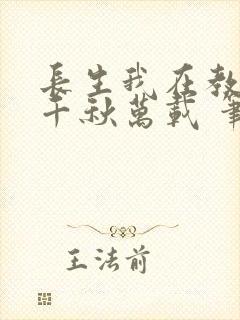 長生我在教
千秋萬載 筆
王法前